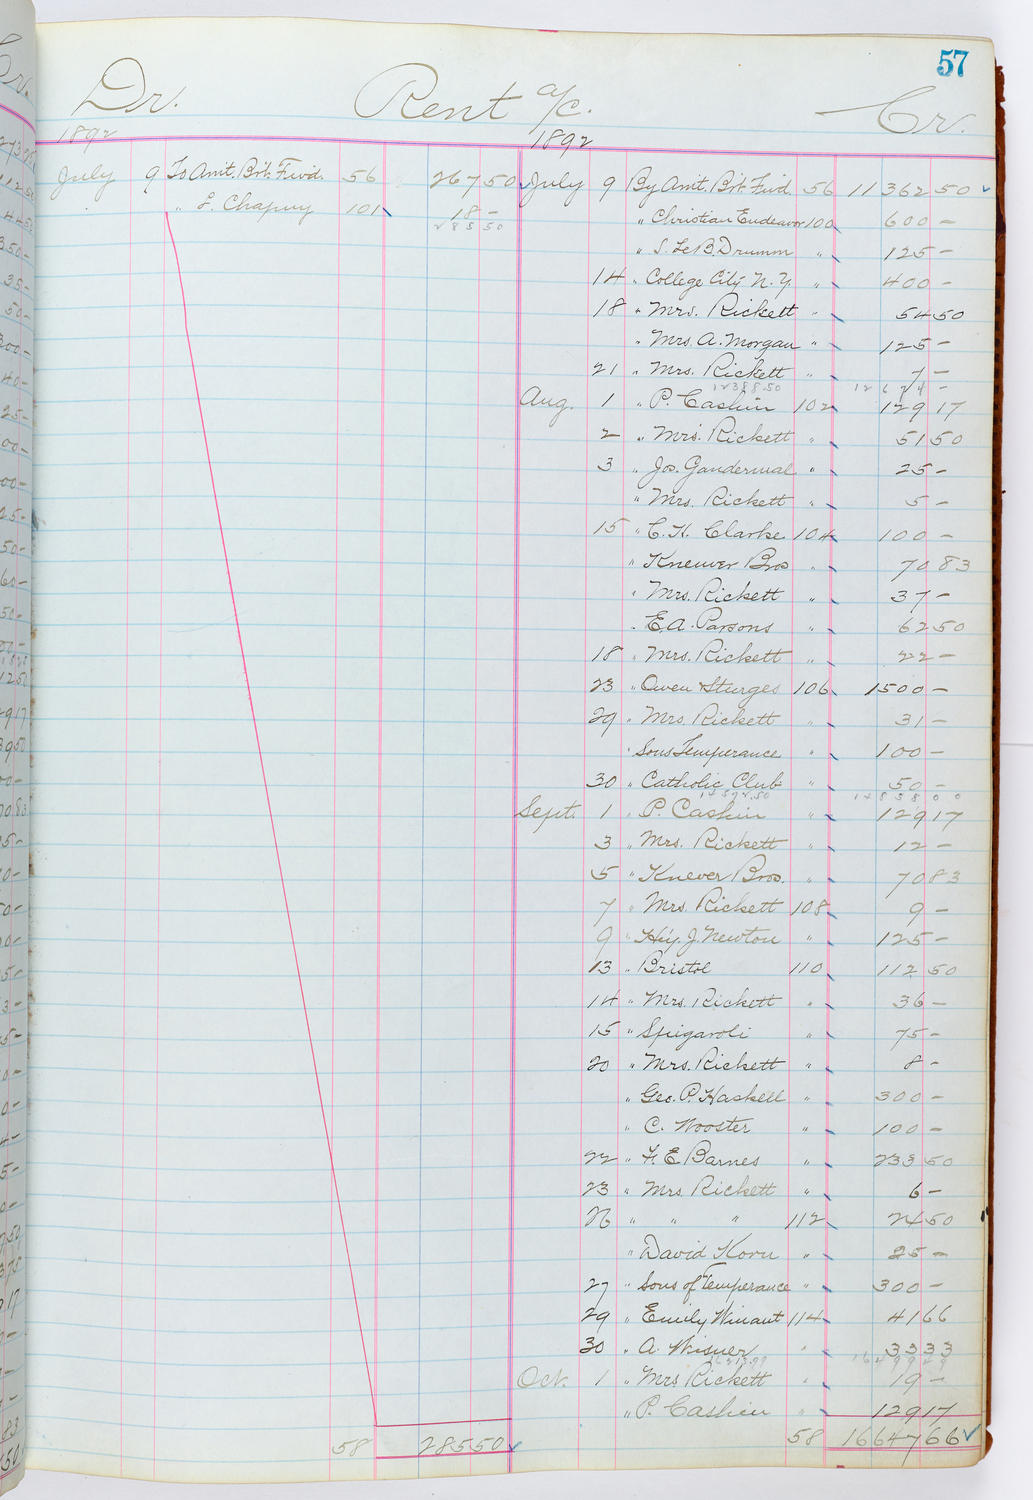 57
Dr. Rent a/c. Cr.
1892 1892
July 9 To Amt. Brt. Fwd. 56 267 50 July 9 By Amt. Brt. Fwd. 56 11 362 50
" L. Chapuy 101 18 - " Christian Endeavor 100 600 -
285 50 " S. Le B. Drumm " 125 -
14 " College City N.Y. " 400 -
18 " Mrs. Rickett " 54 50
" Mrs. A. Morgan " 125 -
21 " Mrs. Rickett " 7 -
12388.50 12674 -
Aug. 1 " P. Cashin 102 129 17
2 " Mrs. Rickett " 51 50
3 " Jos. Ganderwal " 25 -
" Mrs. Rickett " 5 -
15 " C. H. Clarke 104 100 -
" Kneuver Bros " 70 83
" Mrs. Rickett " 37 -
" E. A. Parsons " 62 50
18 " Mrs. Rickett " 22 -
23 " Owen Sturges 106 1500 -
29 " Mrs. Rickett " 31 -
" Sons Temperance " 100 -
30 " Catholic Club " 50 -
14572.50 14858 00
Sept. 1 " P. Cashin " 129 17
3 " Mrs. Rickett " 12 -
5 " Knever Bros. " 70 83
7 " Mrs. Rickett 108 9 -
9 " Hy. J. Newton " 125 -
13 " Bristol 110 112 50
14 " Mrs. Rickett " 36 -
15 " Spigaroli " 75 -
20 " Mrs. Rickett " 8 -
" Geo. P. Haskell " 300 -
" C. Wooster " 100 -
22 " H. E. Barnes " 233 50
23 " Mrs Rickett " 6 -
26 " " " 112 24 50
" David Korn " 25 -
27 " Sons of Temperance " 300 -
29 " Emily Winant 114 41 66
30 " A. Wisner " 33 33
16213.99 16499 49
Oct. 1 " Mrs Rickett " 19 -
" P. Cashin " 129 17
58 285 50 58 16647 66